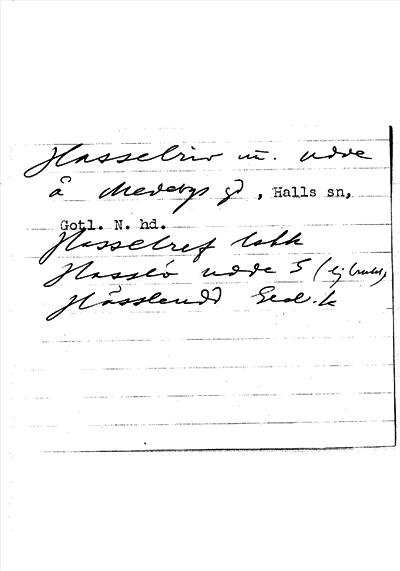 Hasselriv m. udde
å Medebys gd, Halls sn,
Gotl. N. hd.
Hasselref lokk
Hasslö udde S (ej
Hässlendd Ged.k